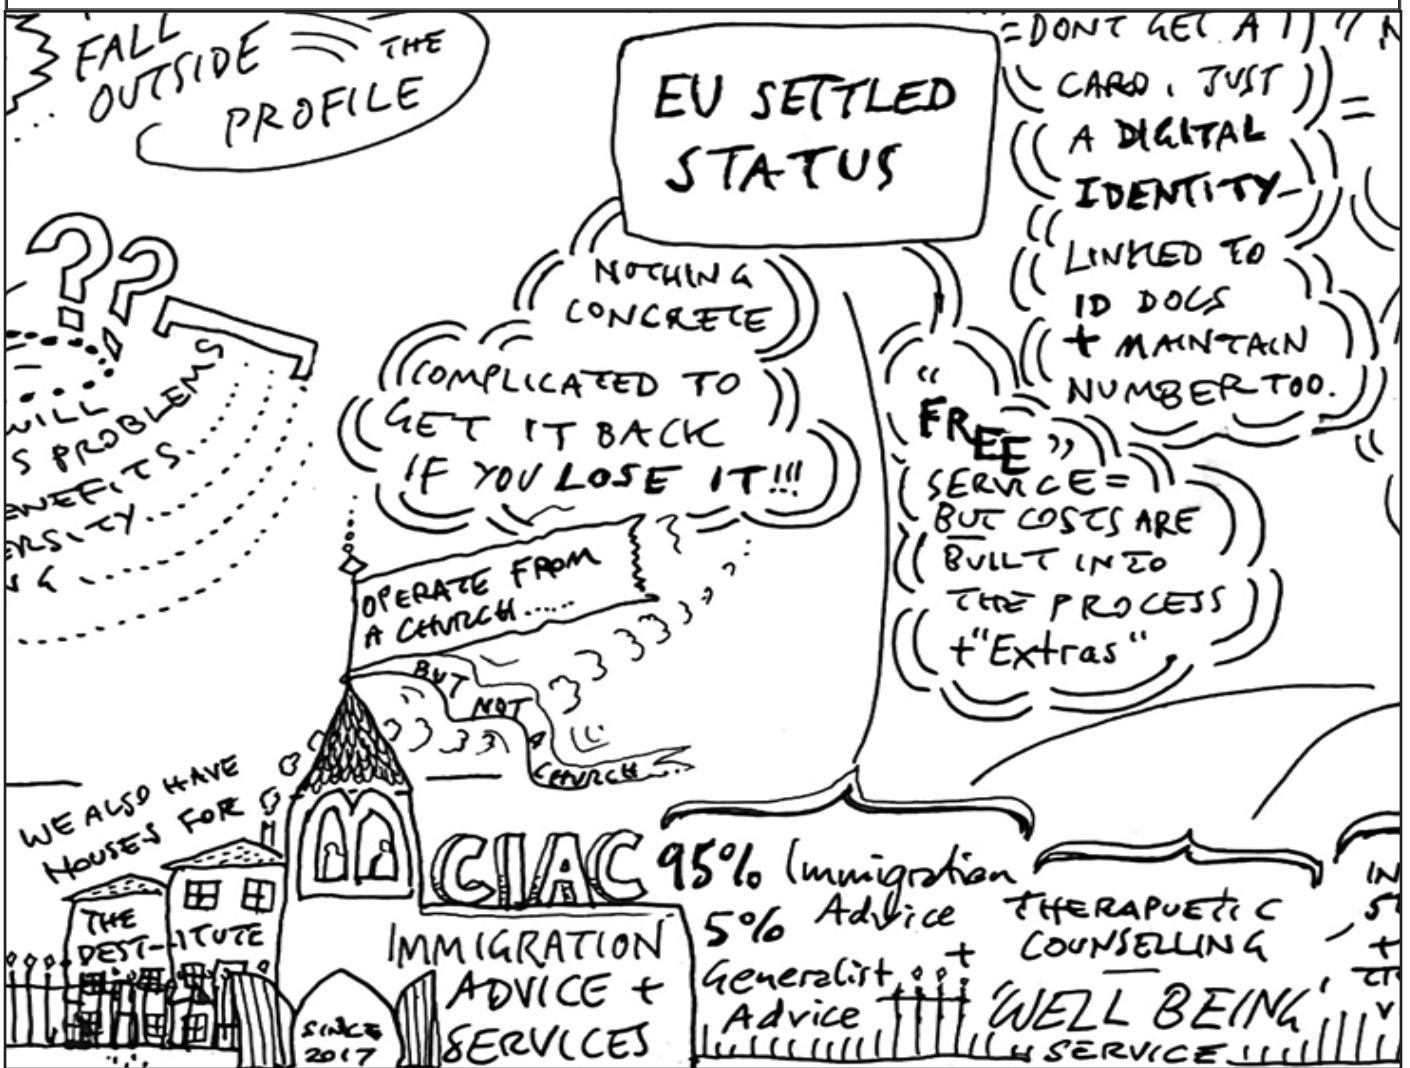 FALL
OUTSIDE THE
PROFILE
EU SETTLED
STATUS
= DONT GET A
CARD, JUST
A DIGITAL
IDENTITY-
LINKED TO
ID DOCS
+ MAINTAIN
NUMBER TOO.
??
WILL
S PROBLEMS
ENEFITS
ERSITY
NG
NOTHING
CONCRETE
COMPLICATED TO
GET IT BACK
IF YOU LOSE IT!!!
"
FREE"
SERVICE =
BUT COSTS ARE
BUILT INTO
THE PROCESS
+"Extras"
OPERATE FROM
A CHURCH......
BUT
NOT
A
CHURCH...
WE ALSO HAVE
HOUSES FOR
THE
DEST-ITUTE
CIAC
IMMIGRATION
ADVICE +
SERVICES
SINCE
2017
95% Immigration
Advice
5% +
Generalist
Advice
THERAPUETIC
COUNSELLING
'WELL BEING'
SERVICE
IN
+